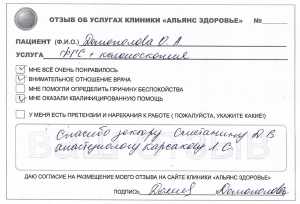 ОТЗЫВ ОБ УСЛУГАХ КЛИНИКИ «АЛЬЯНС ЗДОРОВЬЕ» №
ПАЦИЕНТ (Ф.И.О.) Домополова О. А.
УСЛУГА ФГС + колоноскопия
МНЕ ВСЁ ОЧЕНЬ ПОНРАВИЛОСЬ
ВНИМАТЕЛЬНОЕ ОТНОШЕНИЕ ВРАЧА
МНЕ ПОМОГЛИ ОПРЕДЕЛИТЬ ПРИЧИНУ БЕСПОКОЙСТВА
МНЕ ОКАЗАЛИ КВАЛИФИЦИРОВАННУЮ ПОМОЩЬ
У МЕНЯ ЕСТЬ ПРЕТЕНЗИИ И НАРЕКАНИЯ К РАБОТЕ ( ПОЖАЛУЙСТА, УКАЖИТЕ КАКИЕ!)
Спасибо доктору Сметанину Д В
анастезиологу Корсакову Л. С.
ДАЮ СОГЛАСИЕ НА РАЗМЕЩЕНИЕ МОЕГО ОТЗЫВА НА САЙТЕ КЛИНИКИ «АЛЬЯНС ЗДОРОВЬЕ»
ПОДПИСЬ Домополова